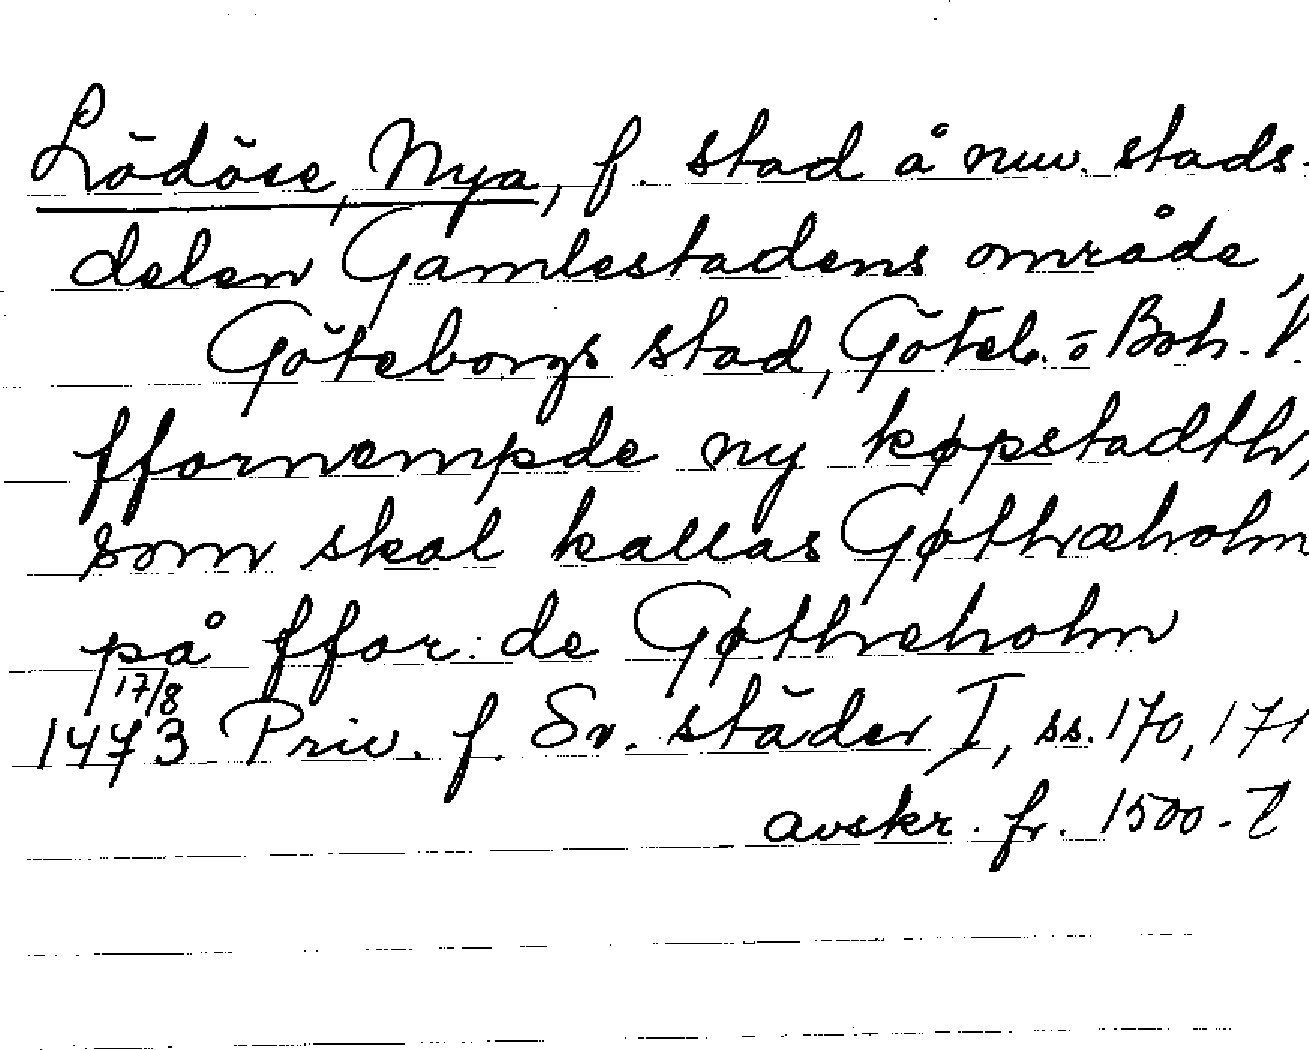 Lödöse, Nya, f. stad å nuv. stads-
delen Gamlestadens område,
Göteborgs stad, Göteb. o Boh. l.
ffornempde ny køpstadth,
som skal kallas Gøthæholm
på ffor: de Gøtheholm
17/8
1473 Priv. f. Sv. städer I, ss. 170, 171
avskr. fr. 1500-t